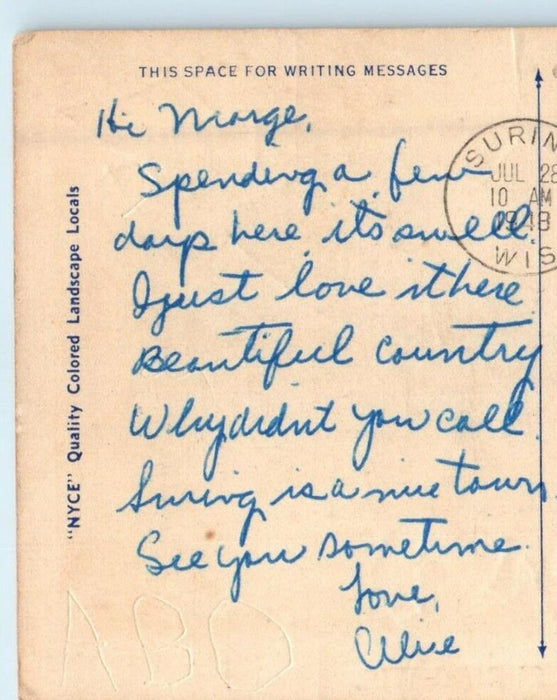 THIS SPACE FOR WRITING MESSAGES
Hi Marge,
Spending a few
days here it's swell.
I just love it here.
Beautiful country
Why didn't you call.
Suring is a nice town.
See you sometime.
Love,
Alice
"NYCE" Quality Colored Landscape Locals
SURIN
JUL 28
10 AM
WIS
ABO